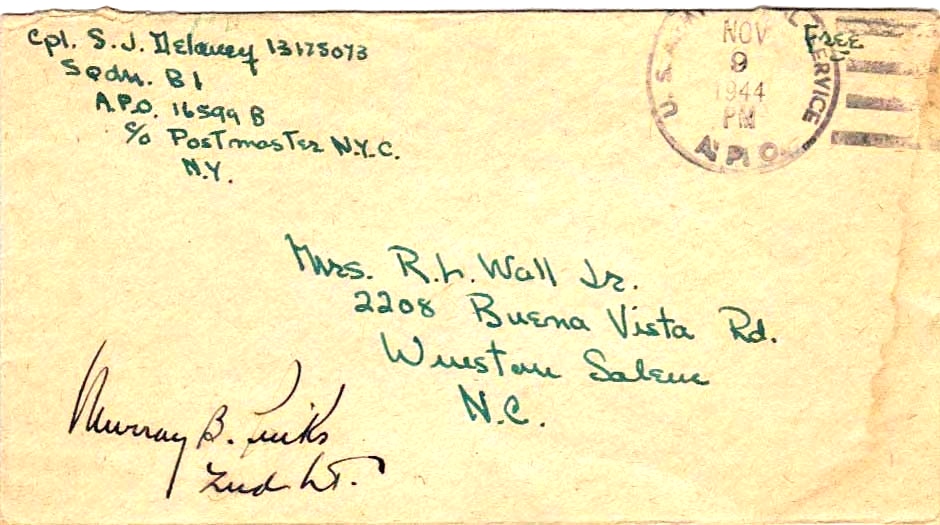 Cpl. S. J. Delaney 13175073
Sqdn. B 1
A.P.O. 16599 B
c/o Postmaster N.Y.C.
N.Y.
U.S. SERVICE
NOV
9
1944
PM
A.P.O.
Free
Mrs. R. L. Wall Jr.
2208 Buena Vista Rd.
Winston Salem
N.C.
Murray B.
2nd Lt.